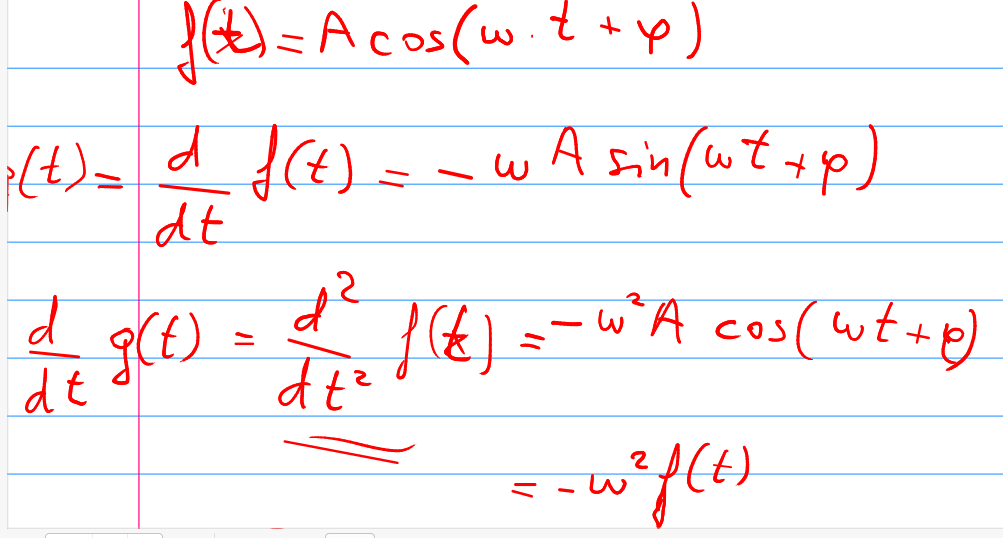 f(t) = A cos(ω · t + φ)
(t) = d/dt f(t) = - ω A sin(ωt + φ)
d/dt g(t) = d²/dt² f(t) = -ω² A cos(ωt + φ)
= -ω² f(t)